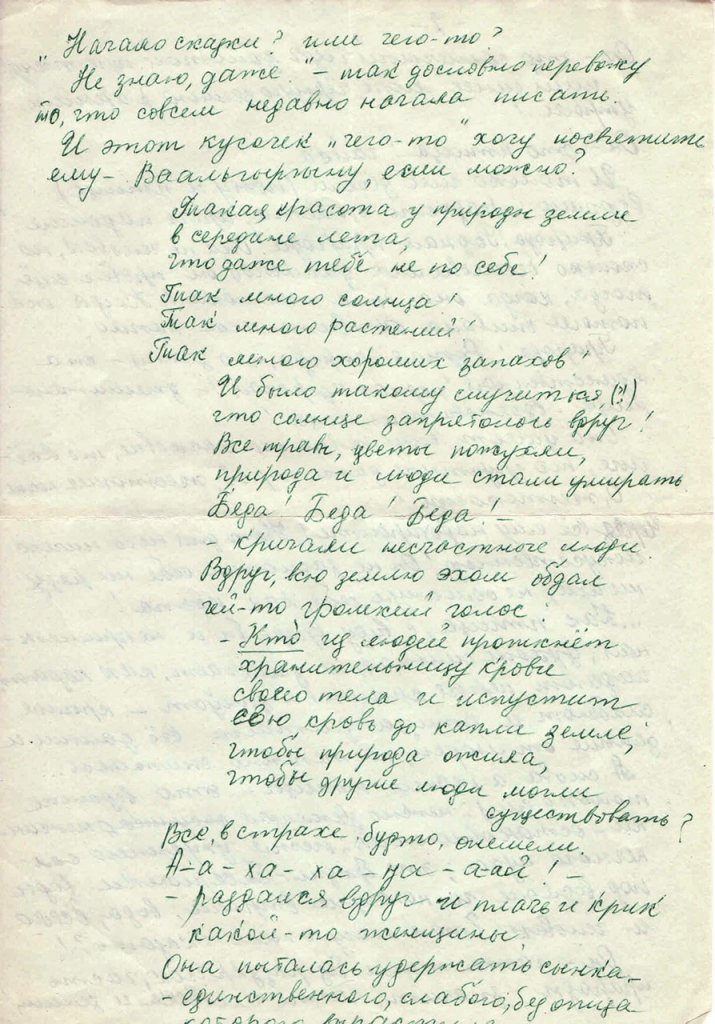 "Начало сказки? или чего-то?
Не знаю, даже" – так дословно перевожу
то, что совсем недавно начала писать.
И этот кусочек "чего-то" хочу посвятить
ему – Ваальгыргыну, если можно?
Такая красота у природы земле
в середине лета,
что даже тебе не по себе!
Так много солнца!
Так много растений!
Так много хороших запахов!
И было такому случиться (?!)
что солнце запряталось вдруг!
Все травы, цветы пожухли,
природа и люди стали умирать.
Беда! Беда! Беда! –
– кричали несчастные люди.
Вдруг, всю землю эхом обдал
чей-то громкий голос:
– Кто из людей проткнёт
хранительницу крови
своего тела и испустит
свою кровь до капли земле,
чтобы природа ожила,
чтобы другие люди могли
существовать?
Все, в страхе, будто, онемели.
А-а-ха-ха-на-а-ай! –
– раздался вдруг и плач и крик
какой-то женщины.
Она пыталась удержать сынка –
– единственного, слабого, без отца
которого